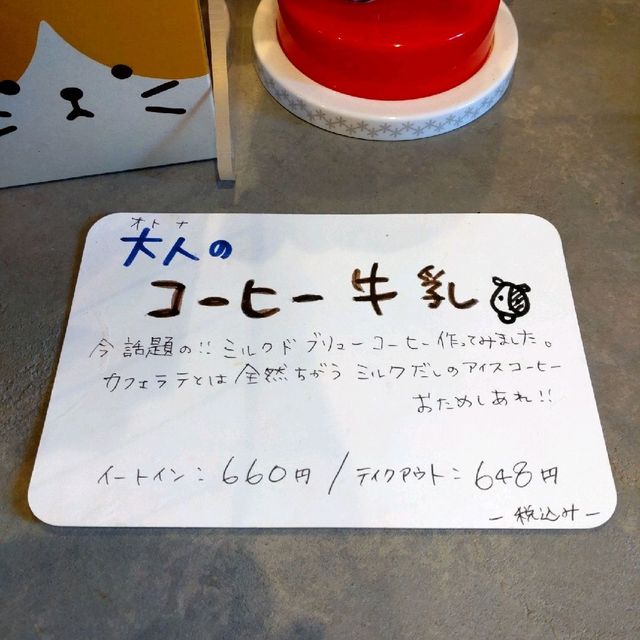 オトナ
大人の
コーヒー牛乳
今話題の!! ミルクド ブリューコーヒー作ってみました。
カフェラテとは全然ちがう ミルクだしのアイスコーヒー
おためしあれ!!
イートイン:660円 / テイクアウト:648円
ー税込みー